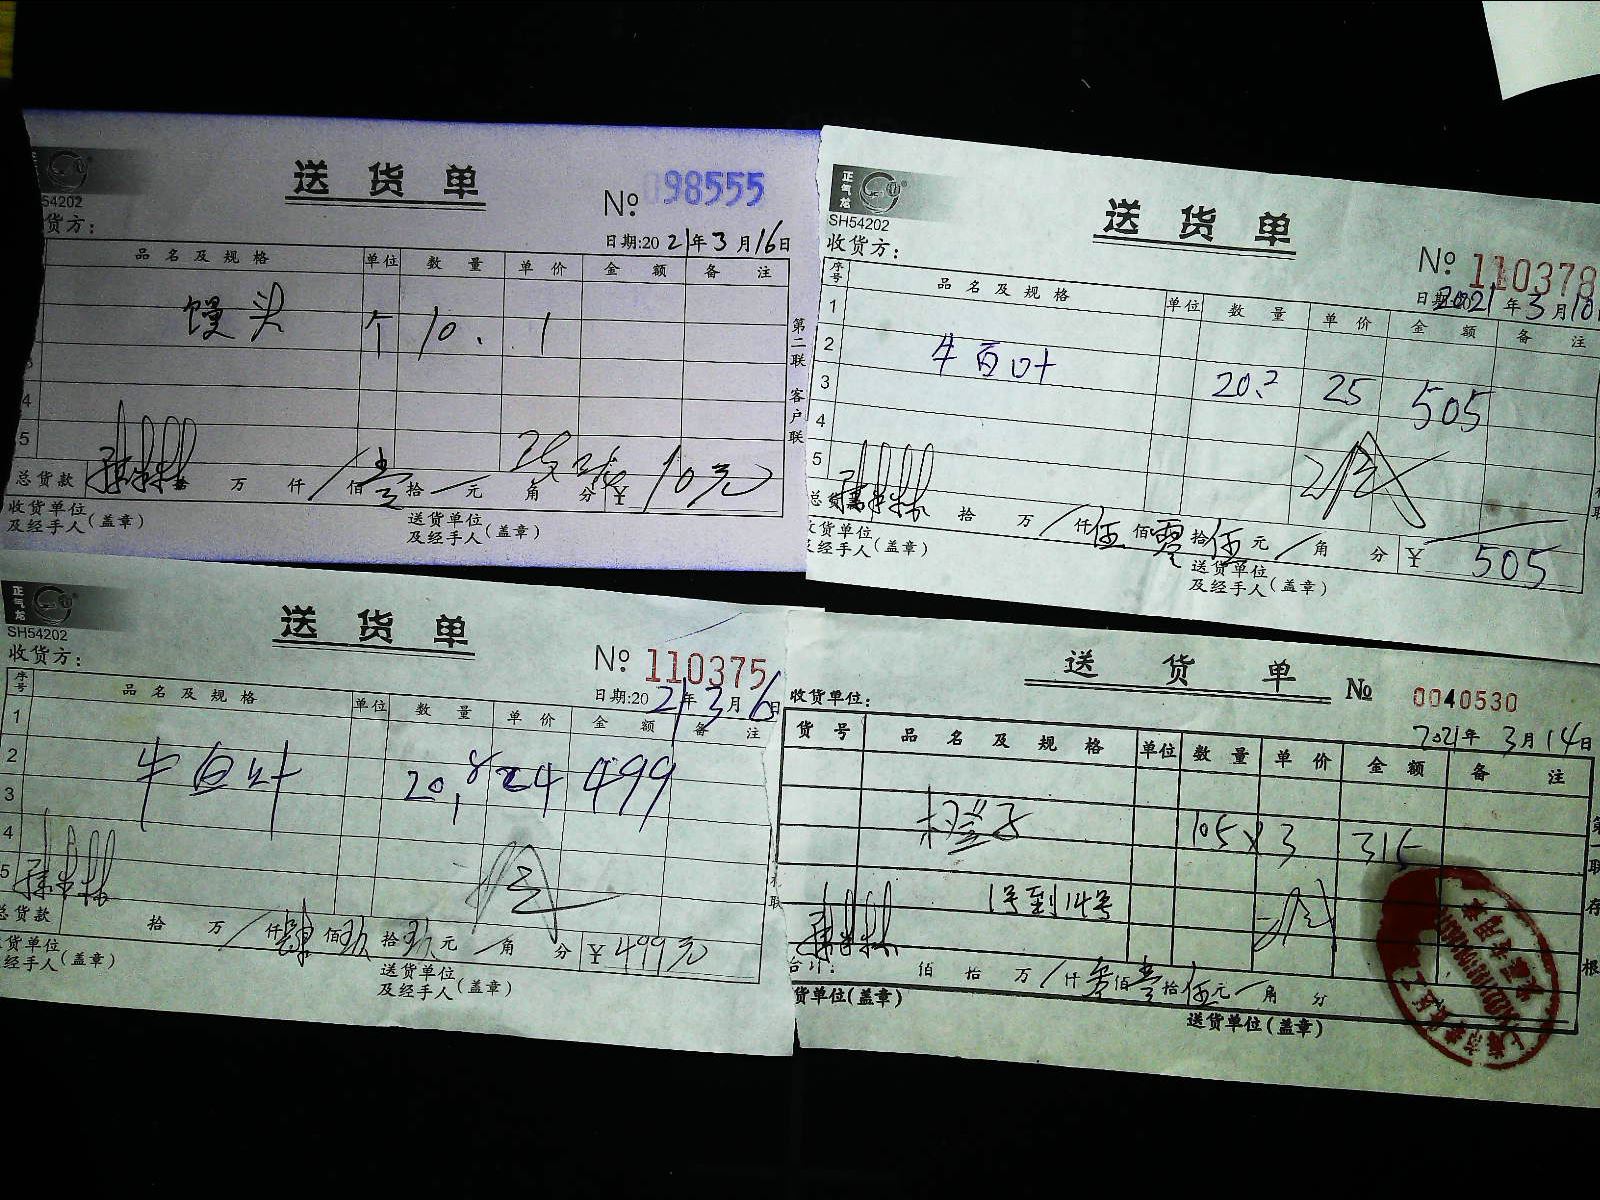 SH54202
送货单
№ 098555
货方：
日期:2021年3月16日
品名及规格 单位 数量 单价 金额 备注
馒头 个 10. 1
4
5
总货款 拾 万 仟 / 佰 壹 拾 一 元 角 分 ¥ 10元
收货单位
及经手人(盖章)
送货单位
及经手人(盖章)
第二联 客户联
正气龙
SH54202
送货单
№ 110378
收货方：
日期:2021年3月10
序号 品名及规格 单位 数量 单价 金额 备注
1
2 牛百叶 20.2 25 505
3
4
5
总货款 拾 万 / 仟 伍 佰 零 拾 伍 元 / 角 分 ¥ 505
收货单位
及经手人(盖章)
送货单位
及经手人(盖章)
正气龙
SH54202
送货单
№ 110375
收货方：
日期:2021年3月6日
序号 品名及规格 单位 数量 单价 金额 备注
1
2 牛百叶 20.8 24 499
3
4
5
总货款 拾 万 / 仟 肆 佰 玖 拾 玖 元 一 角 分 ¥ 499元
货单位
经手人(盖章)
送货单位
及经手人(盖章)
送货单
№ 0040530
收货单位：
2021年3月14日
货号 品名及规格 单位 数量 单价 金额 备注
105 x 3 315
1号到14号
合计： 佰 拾 万 / 仟 叁 佰 壹 拾 伍 元 一 角 分
货单位(盖章)
送货单位(盖章)